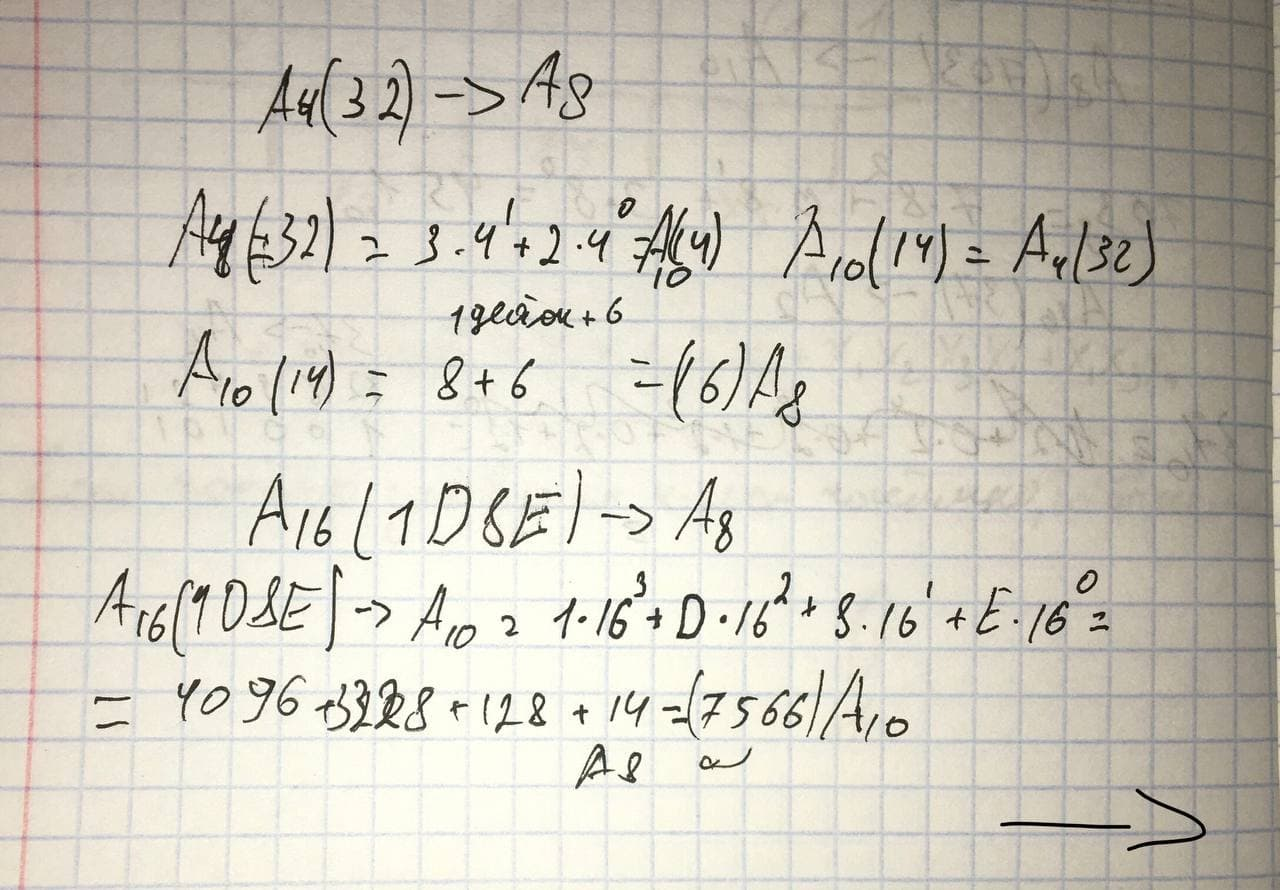 A₄(32) -> A₈
A₄(32) = 3·4¹+2·4⁰=A₁₀(14) A₁₀(14) = A₄(32)
+ 6
A₁₀(14) = 8+6 =(16)A₈
A₁₆(1D8E) -> A₈
A₁₆(1D8E) -> A₁₀ = 1·16³+D·16²+8·16¹+E·16⁰=
= 4096+3328+128+14=(7566)A₁₀
A₈